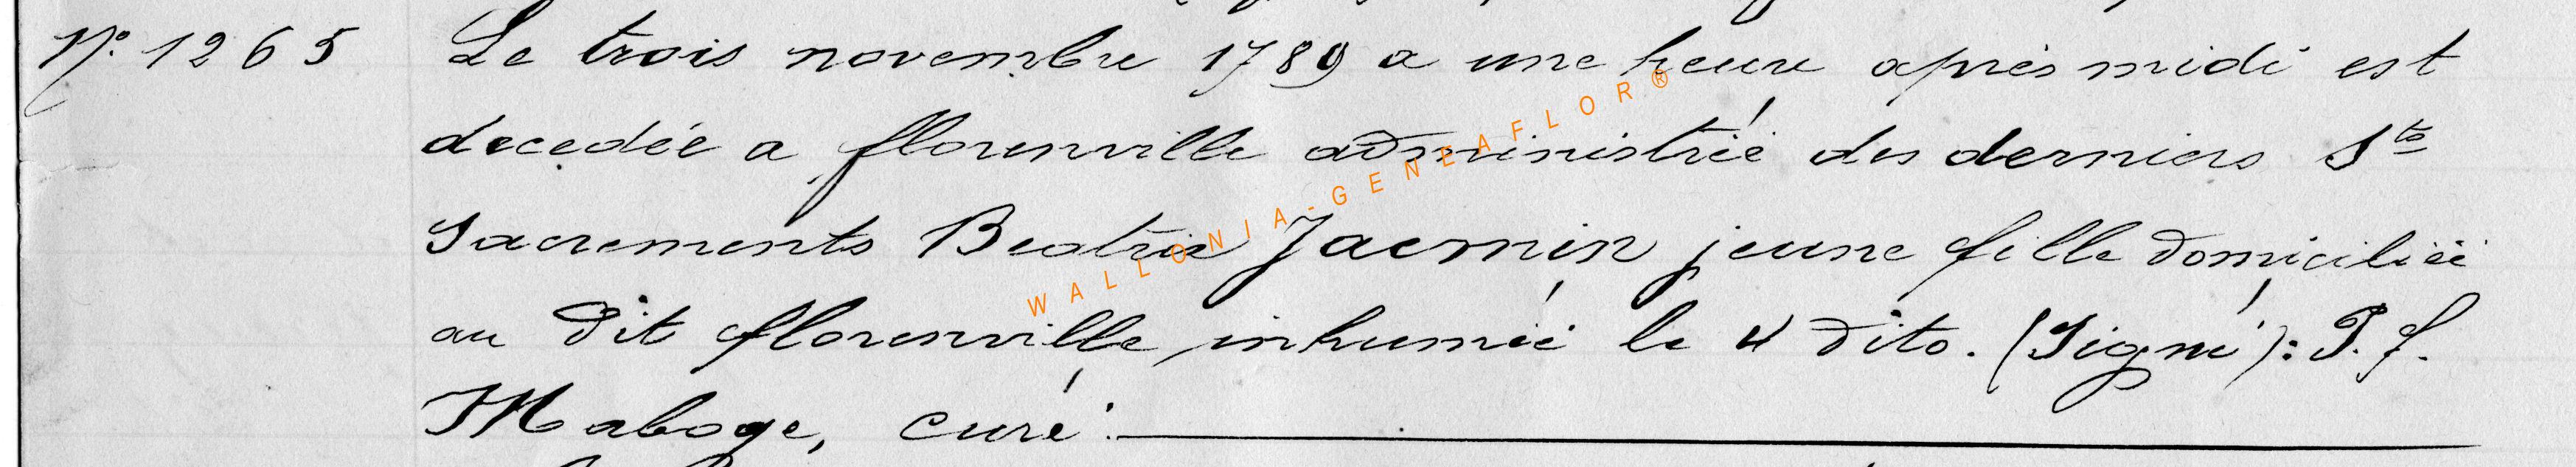 N° 1265 Le trois novembre 1789 a une heure après midi est
decedée a florenville administrée des derniers Sts
Sacrements Beatrix Jacmin jeune fille domiciliée
au dit florenville inhumée le 4 dito. (Signé): P. f.
Maboge, curé.
WALLONIA-GENEAFLOR®